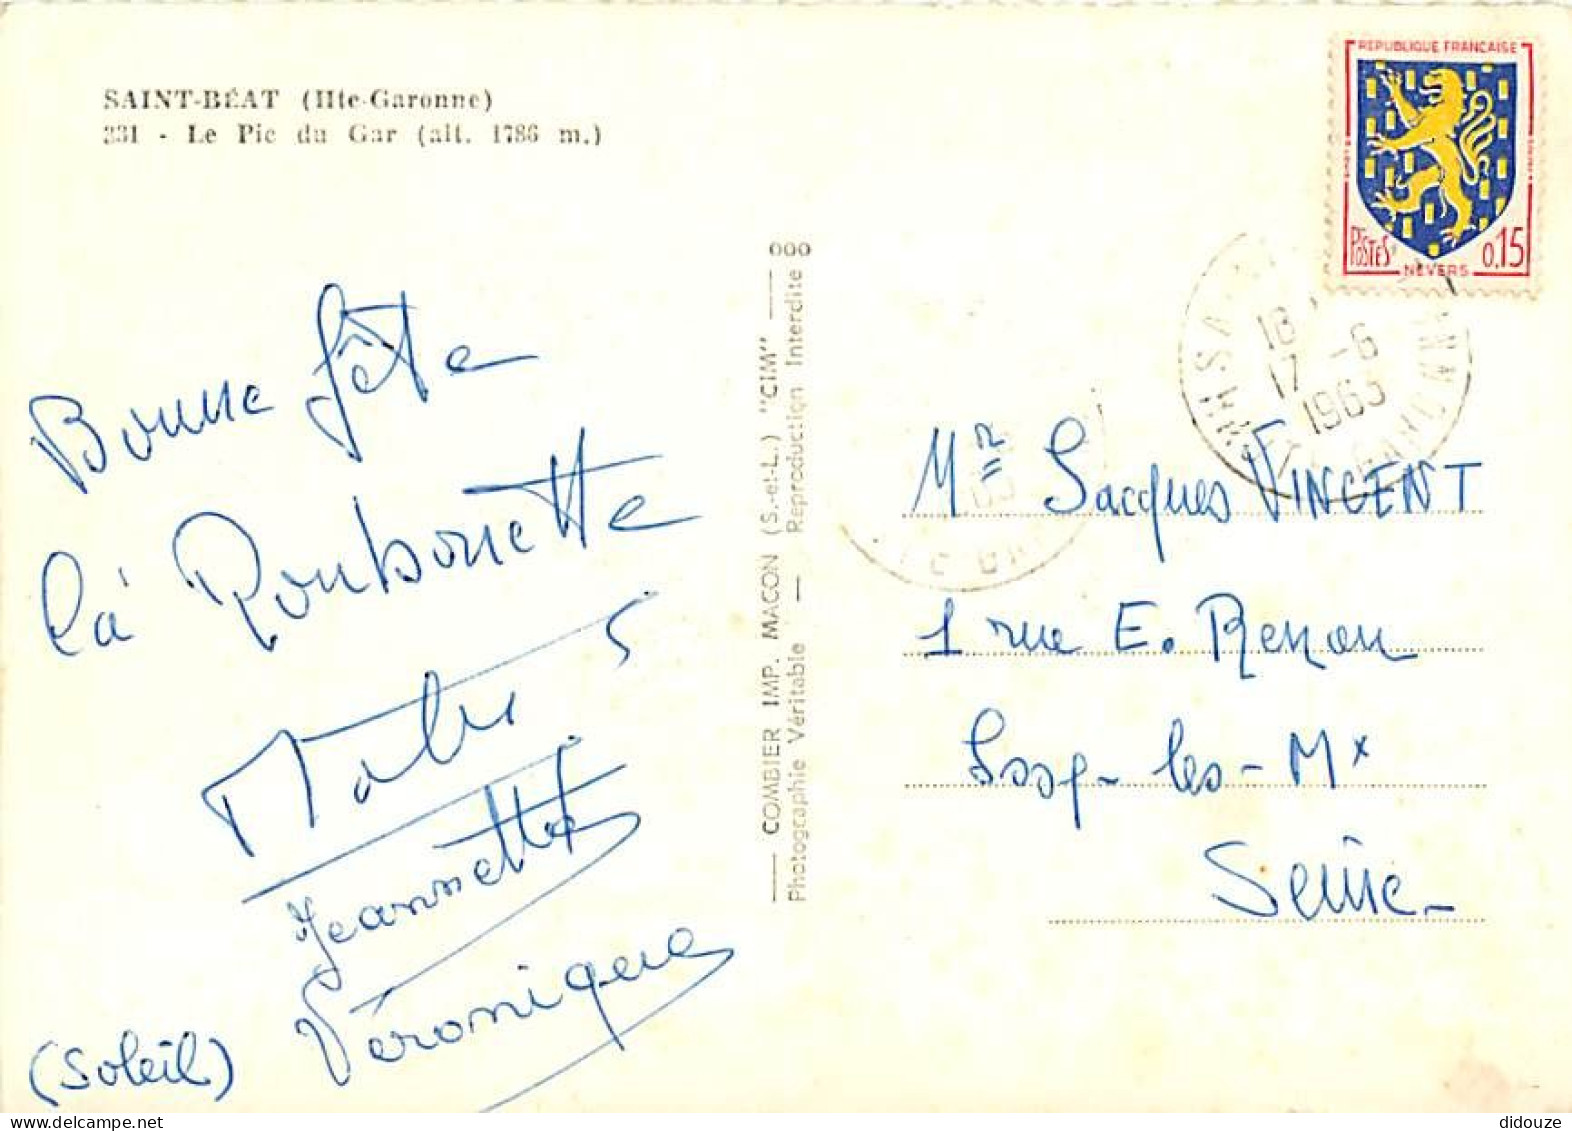 SAINT-BÉAT (Hte-Garonne)
331 - Le Pic du Gar (alt. 1786 m.)
Bonne fête
la
Jeannette
Véronique
(Soleil)
COMBIER IMP. MACON (S.-et-L.) "CIM"
Photographie Véritable — Reproduction Interdite
REPUBLIQUE FRANÇAISE
POSTES
0,15
NEVERS
18
17 -6
1963
Mr Jacques VINCENT
1 rue E. Renan
Issy-les-Mx
Seine
didouze